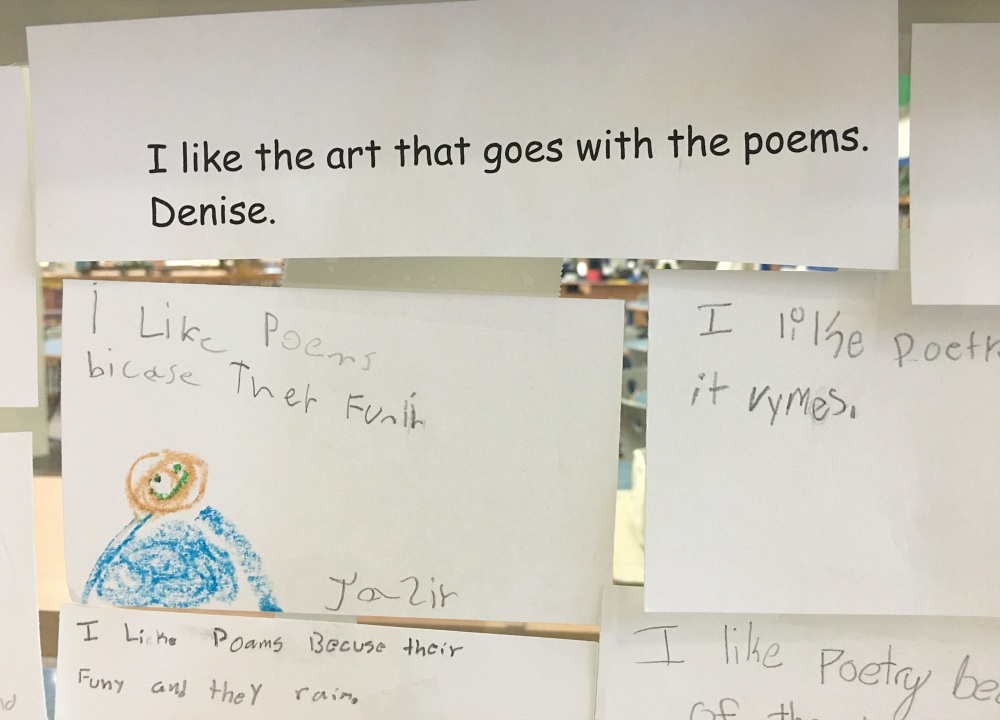 I like the art that goes with the poems.
Denise.
I Like Poems
bicase Ther
Jazir
I like
it rymes.
I Licke Poams Becuse their
Funy and they raim.
I like Poetry
of